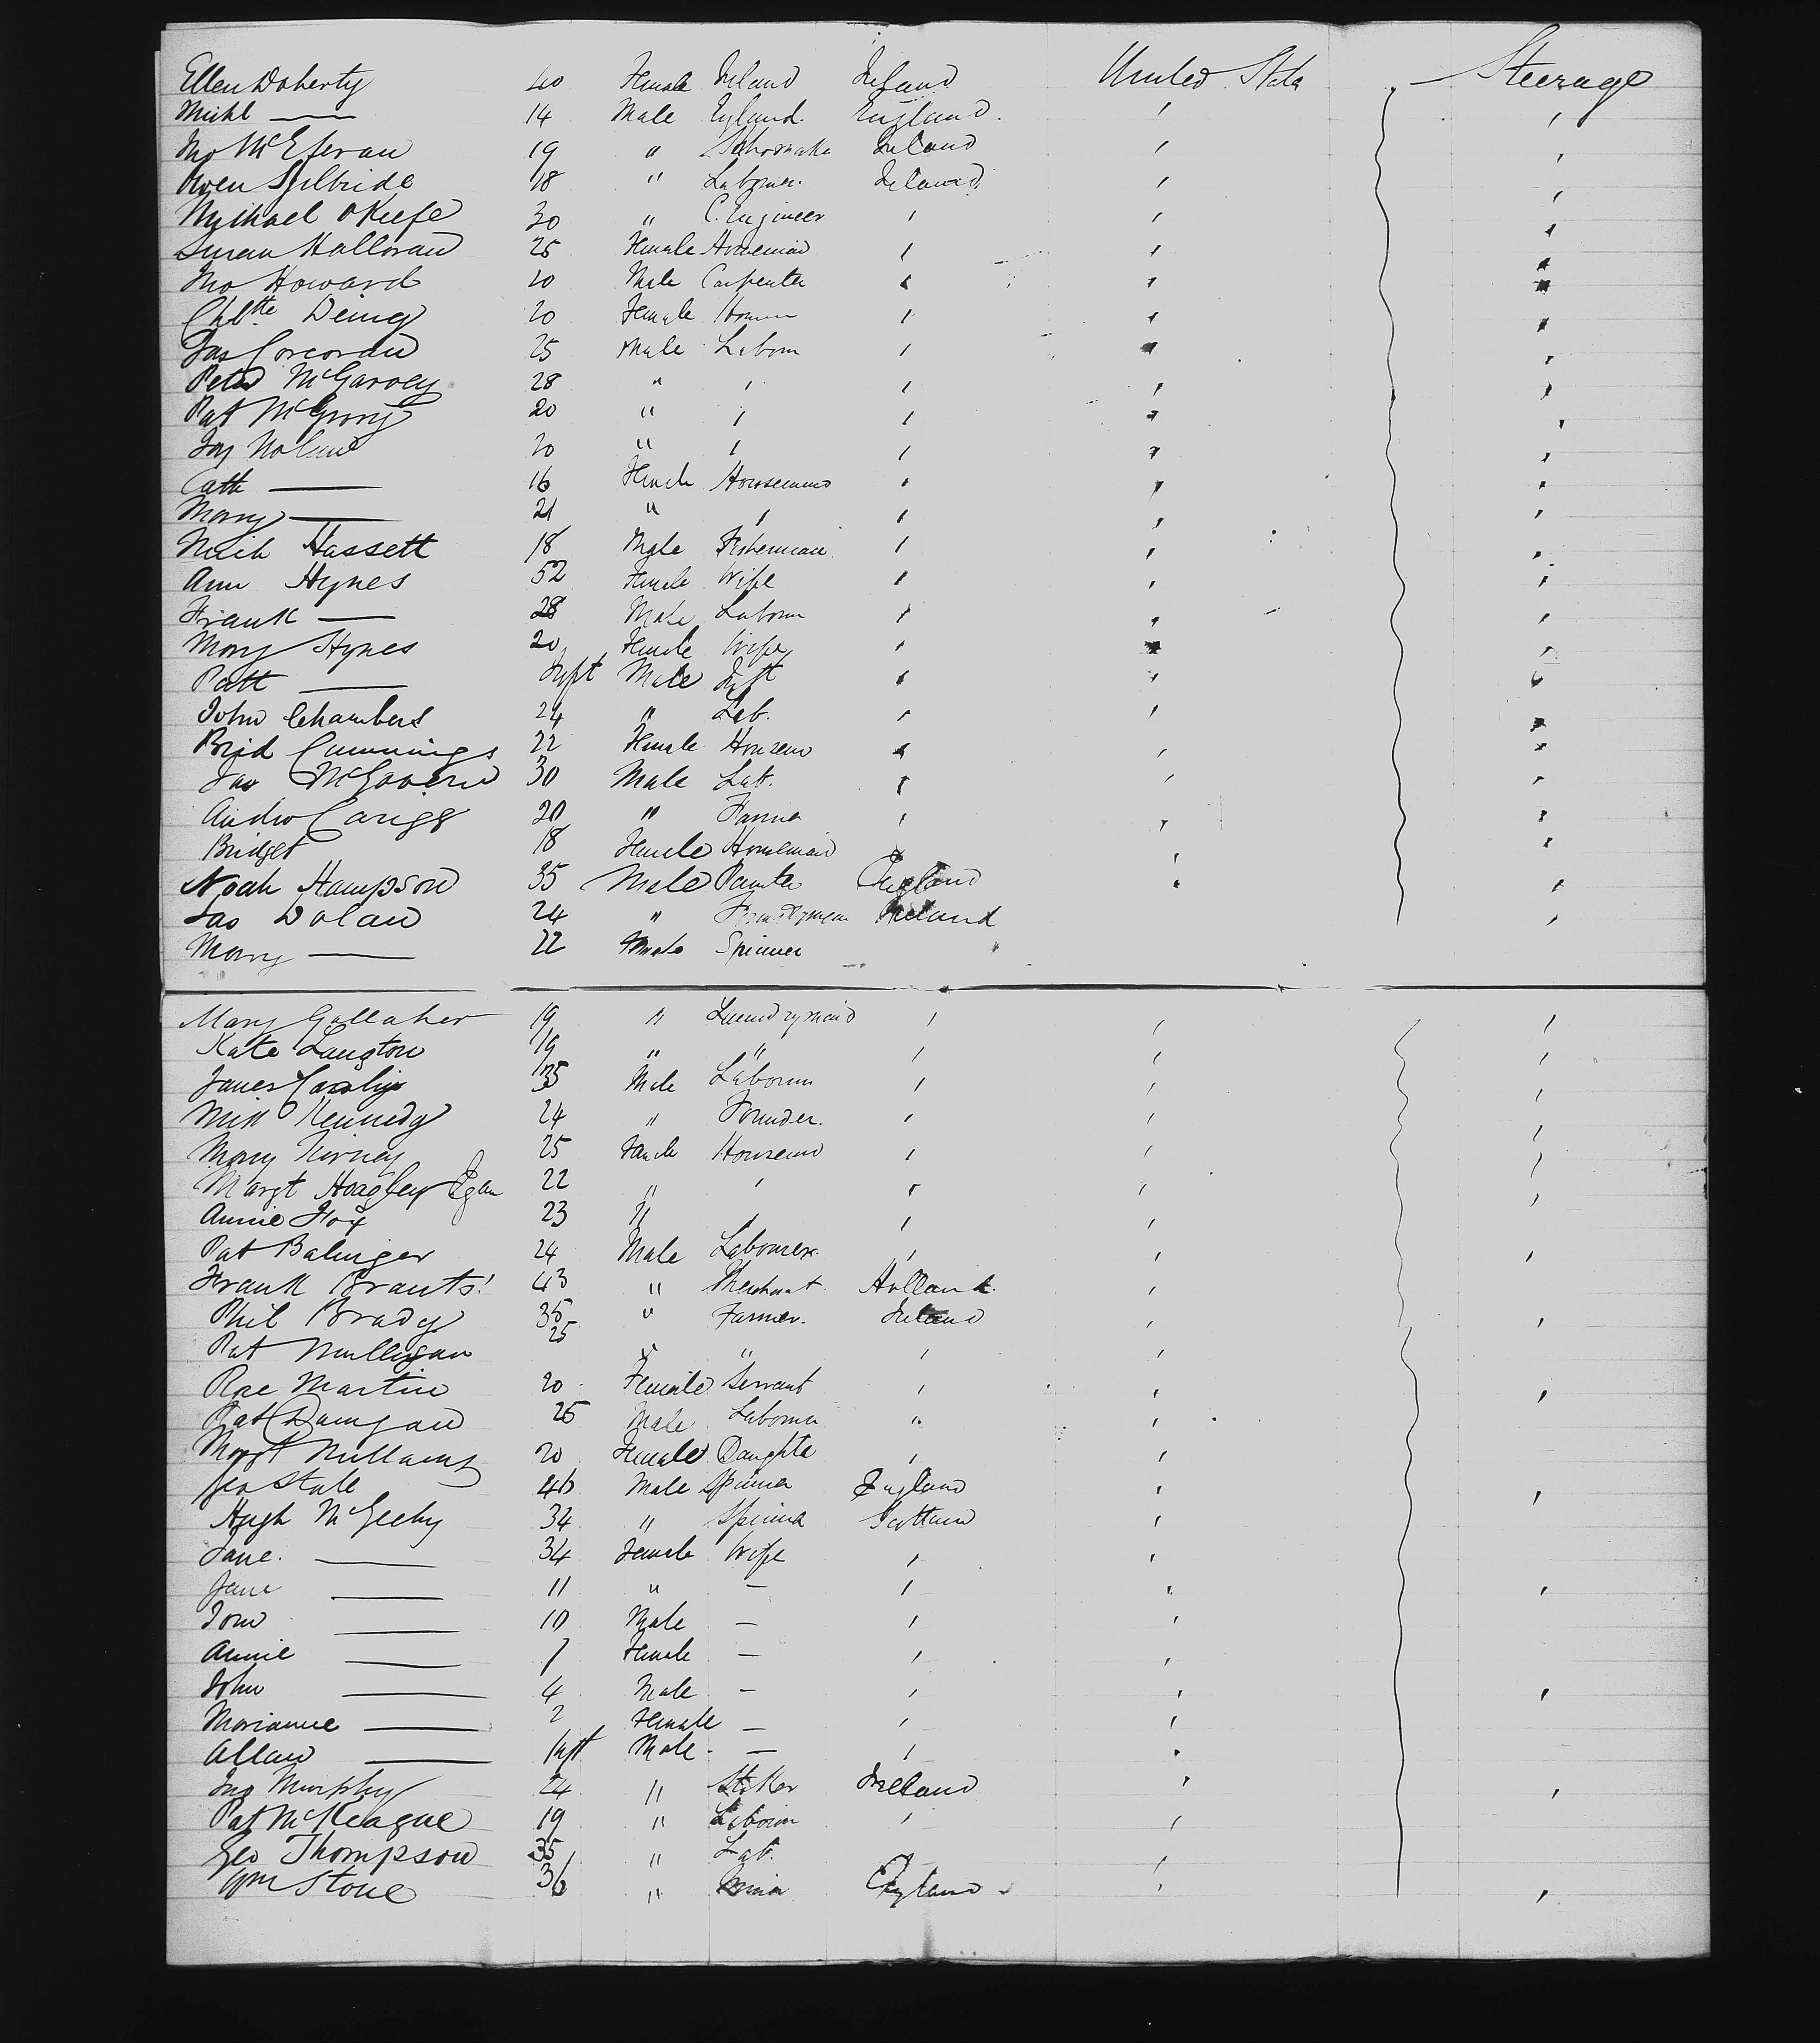 Ellen Doherty 40 Female Ireland Ireland United States Steerage
Michl —— 14 Male England England
Jno McEleran 19 " Ireland
Owen Gilbride 18 " Labourer Ireland
Michael OKeefe 30 " C. Engineer
Susan Halloran 25 Female Housemaid
Jno Howard 20 Male Carpenter
20 Female
Jas Corcoran 25 Male Labour
Peter McGarvey 28 "
Pat 20 "
Jas Nolan 20 "
Cath —— 16 Female Housemaid
Mary —— 21 "
Mich Hassett 18 Male Fisherman
Ann Hynes 52 Female Wife
Frank —— 28 Male Labour
Mary Hynes 20 Female Wife
Patt —— Inft Male Inft
John Chambers 24 " Lab.
Brid Cummings 22 Female Housem
Jas McGovern 30 Male Lab.
Andw 20 " Farmer
Bridget 18 Female Housemaid
Noah Hampson 35 Male Painter England
Jas Dolan 24 " Ireland
Mary —— 22 Female Spinner
Mary Gallaher 19 " Laundrymaid
Kate Langton 19 " "
James 35 Male Labourer
Kennedy 24 " Founder.
Mary 25 Female Housem
Margt Egan 22 "
Annie Fox 23 "
Pat 24 Male Labourer
Frank Brants 43 " Merchant Holland.
Phil Brady 35 " Farmer. Ireland
Pat Mulligan 25 " "
Rose Martin 20 Female Servant
Pat 25 Male Labourer
Margt 20 Female Daughter
Geo 46 Male Spinner England
Hugh McGeehy 34 " Spinner Scotland
Jane. —— 34 Female Wife
Jane —— 11 " —
Tom —— 10 Male —
Annie —— 7 Female —
John —— 4 Male —
Marianne —— 2 Female —
Allan —— Inft Male —
Jno Murphy 24 " Stoker Ireland
Pat McKeague 19 " Labour
Geo Thompson 35 " Lab.
Wm Stone 36 " England